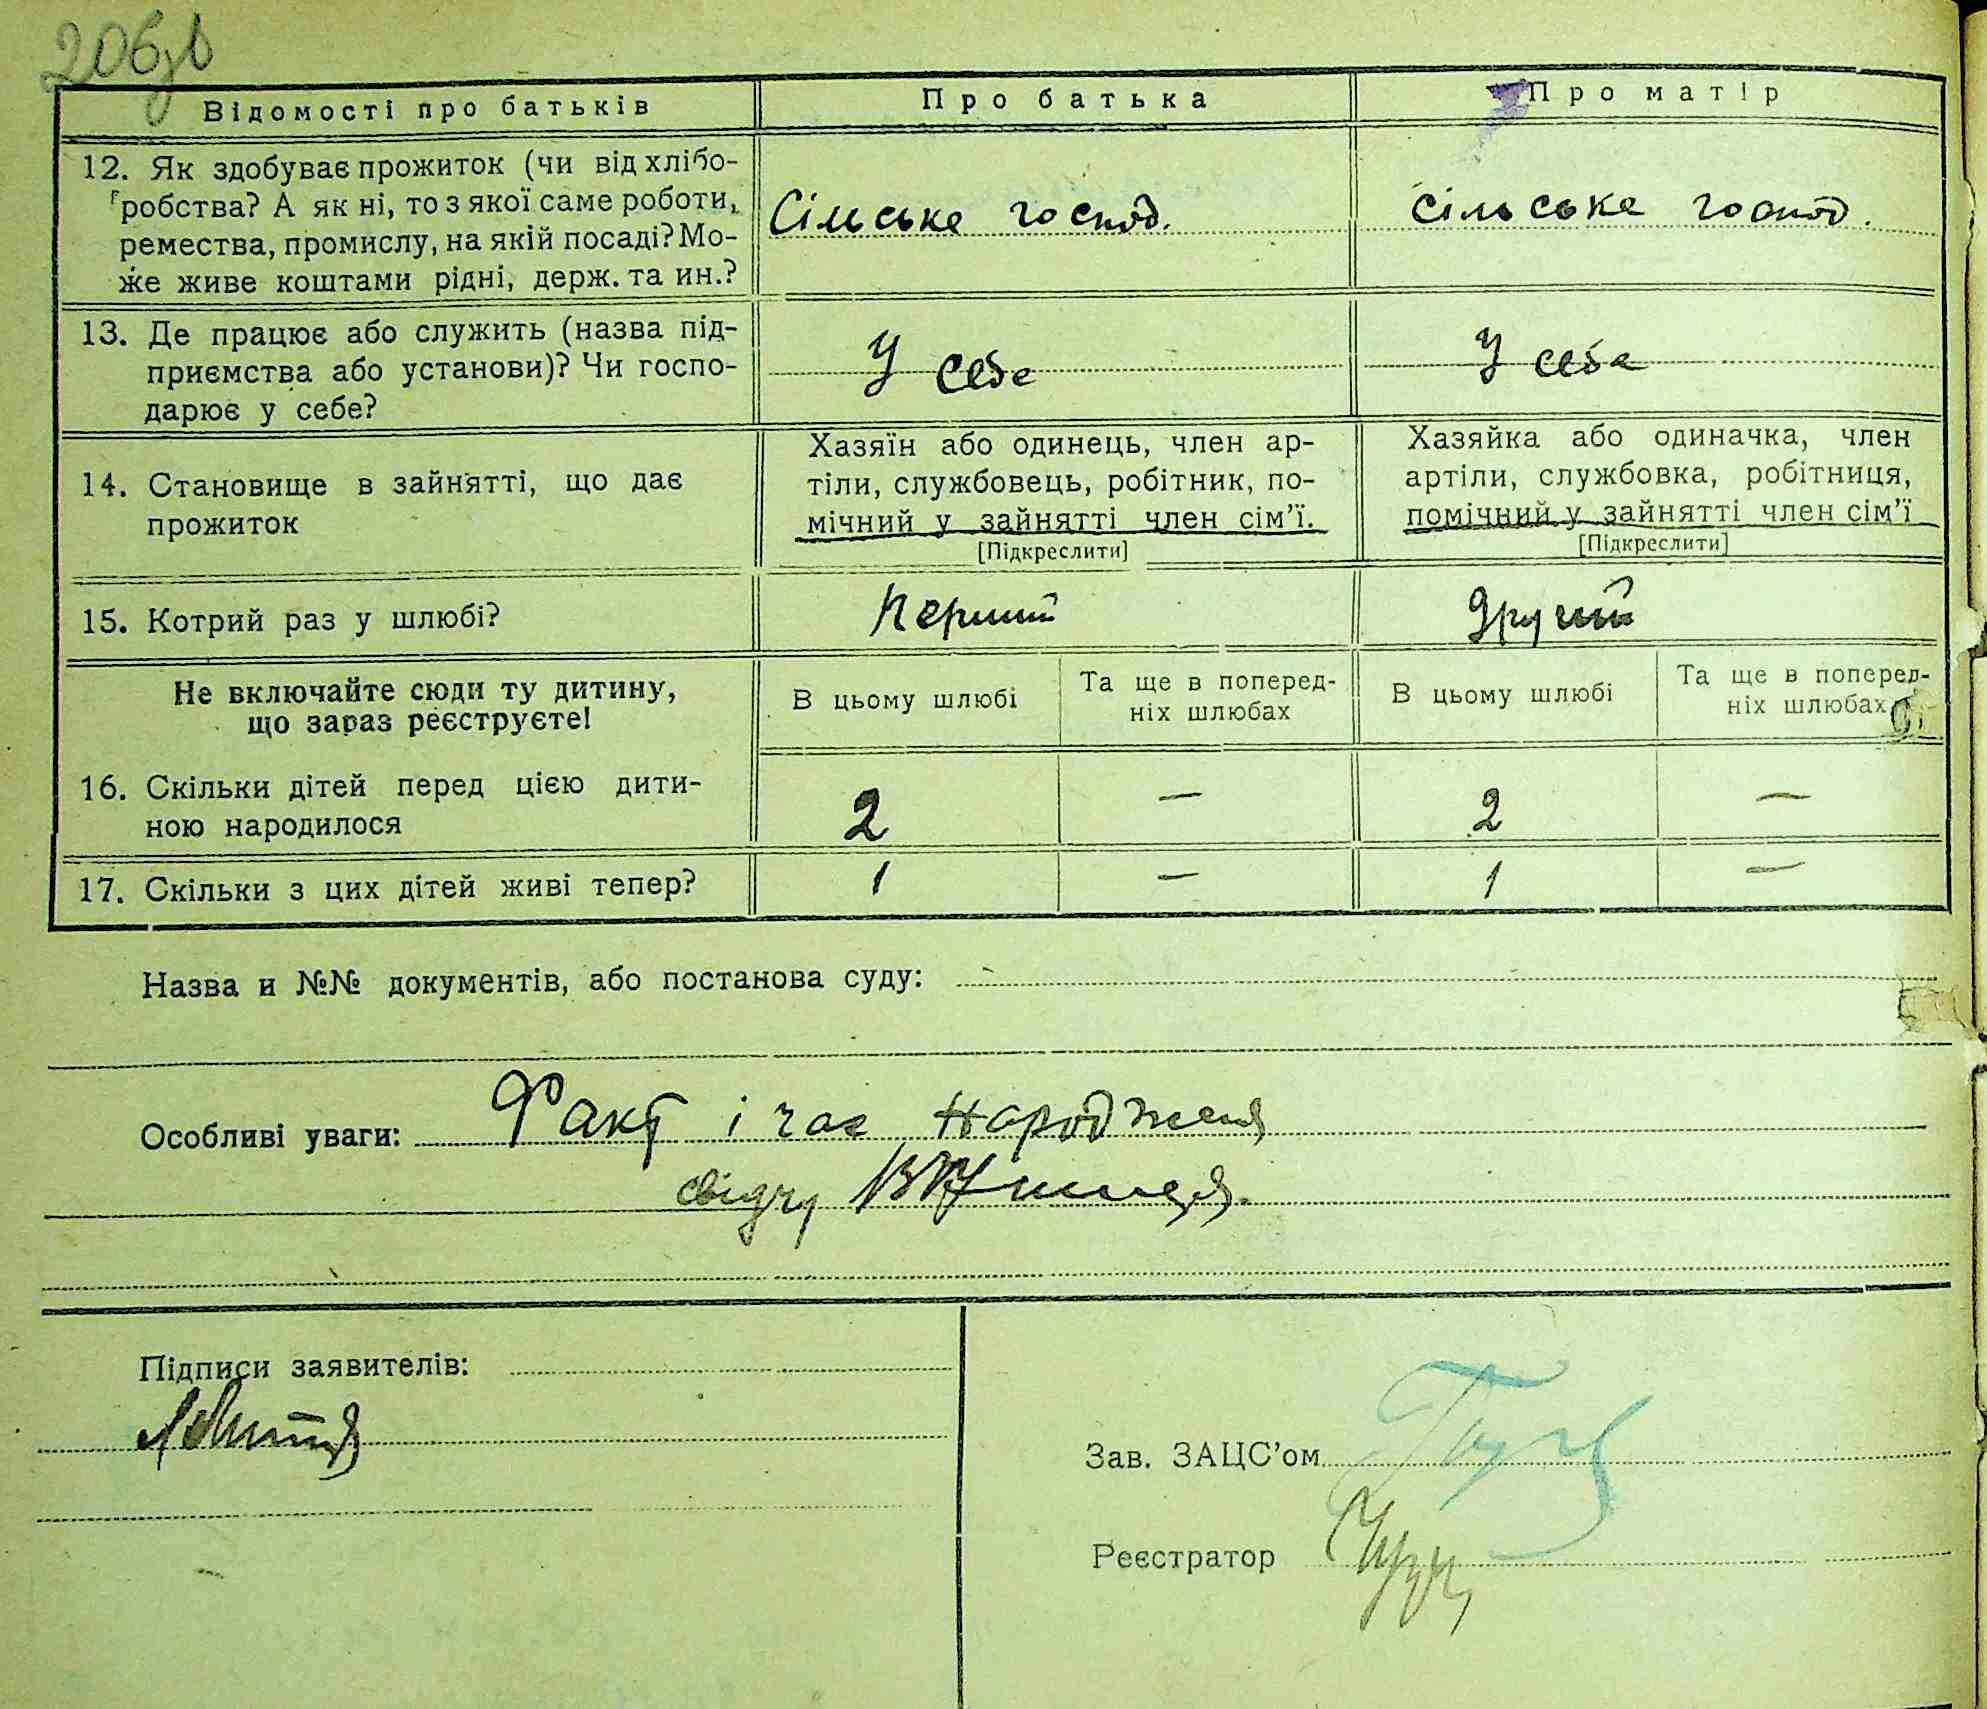 206зв
Відомості про батьків
Про батька
Про матір
12. Як здобуває прожиток (чи від хлібо-
робства? А як ні, то з якої саме роботи,
ремества, промислу, на якій посаді? Мо-
же живе коштами рідні, держ. та ин.?
Сільське господ.
сільське господ.
13. Де працює або служить (назва під-
приємства або установи)? Чи госпо-
дарює у себе?
У себе
У себе
14. Становище в зайнятті, що дає
прожиток
Хазяїн або одинець, член ар-
тіли, службовець, робітник, по-
мічний у зайнятті член сім'ї.
[Підкреслити]
Хазяйка або одиначка, член
артіли, службовка, робітниця,
помічний у зайнятті член сім'ї
[Підкреслити]
15. Котрий раз у шлюбі?
Перший
Другий
Не включайте сюди ту дитину,
що зараз реєструєте!
В цьому шлюбі
Та ще в поперед-
ніх шлюбах
В цьому шлюбі
Та ще в поперед-
ніх шлюбах
16. Скільки дітей перед цією дити-
ною народилося
2 — 2 —
17. Скільки з цих дітей живі тепер?
1 — 1 —
Назва и №№ документів, або постанова суду:
Особливі уваги: Факт і час народження
свідчу
Підписи заявителів:
Зав. ЗАЦС'ом
Реєстратор